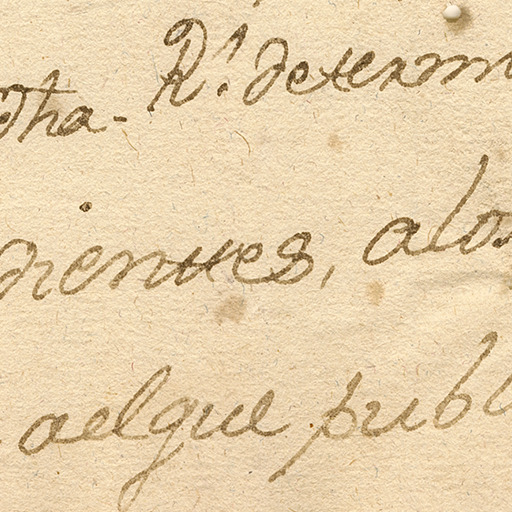 dha. Rl. determ
rientes, alos
aelque publ